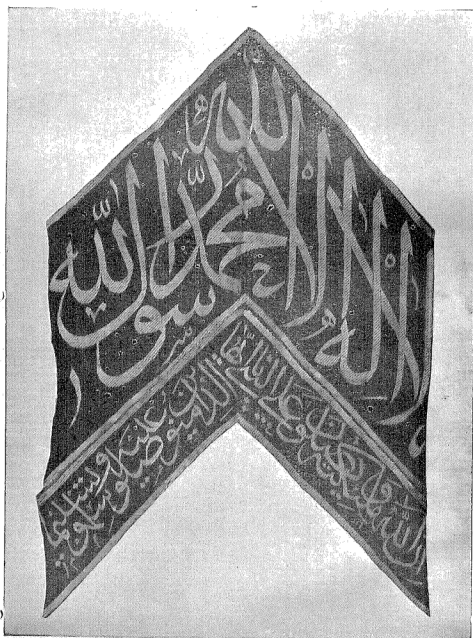 لا إله إلا الله محمد رسول الله
إن الله وملائكته يصلون على النبي يا أيها الذين آمنوا صلوا عليه وسلموا تسليما